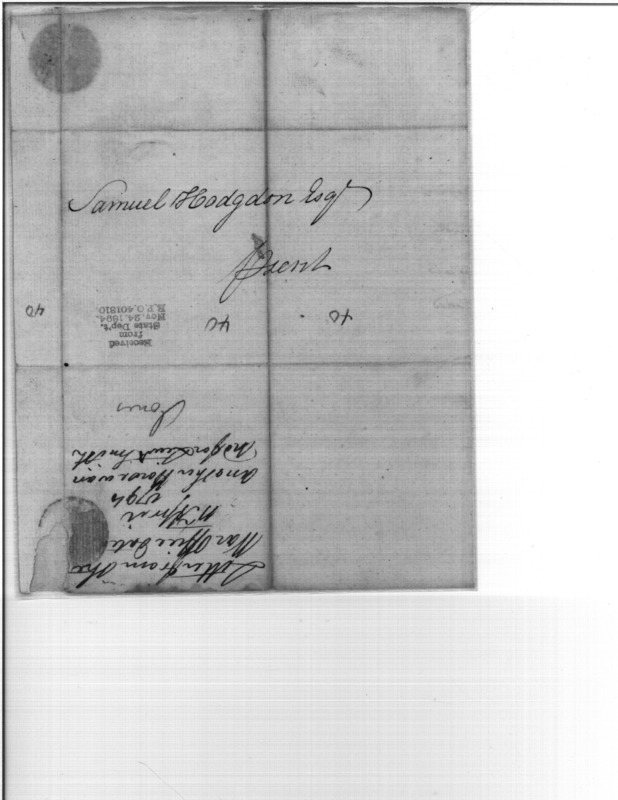 Samuel Hodgdon Esqr
Present
40
40
40
Received
from
State Dep't.
Nov. 24, 1894.
R.P.O. 401810.
Letter from the
War Office date
11th April
1794
another
Lieut Smith
Jones